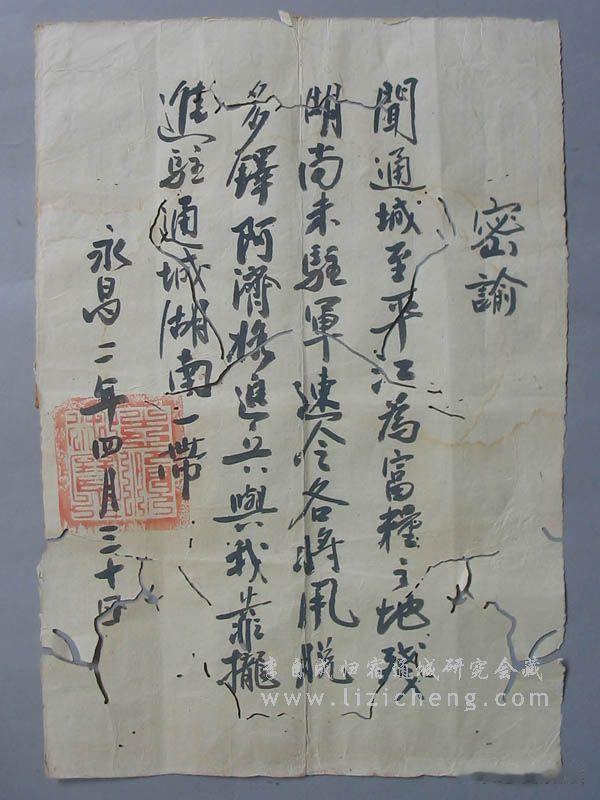 密諭
聞通城至平江為富糧之地残
明尚未駐軍速令各将甩脱
多鐸阿濟格進兵與我靠攏
進駐通城湖南一帶
永昌二年四月三十日
李自成归宿通城研究会藏
www.lizicheng.com